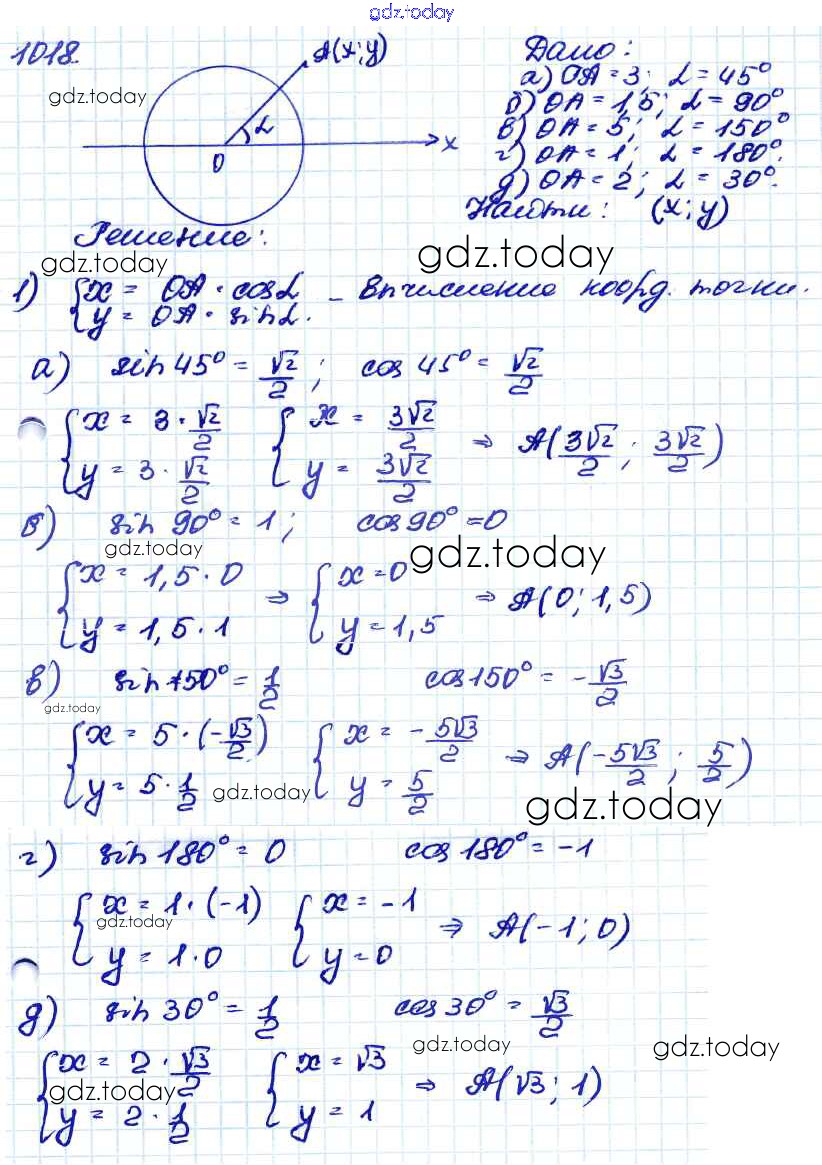 gdz.today
1018.
A(x;y)
gdz.today
α
O
x
Дано:
а) OA = 3; α = 45°
б) OA = 1,5; α = 90°
в) OA = 5; α = 150°
г) OA = 1; α = 180°.
д) OA = 2; α = 30°.
Найти: (x; y)
Решение:
gdz.today
gdz.today
1) {x = OA · cosα
y = OA · sinα.
– Вычисление коорд. точки.
а) sin 45° = √2/2; cos 45° = √2/2
{x = 3 · √2/2 {x = 3√2/2
y = 3 · √2/2 y = 3√2/2
⇒ A(3√2/2; 3√2/2)
б) sin 90° = 1; cos 90° = 0
gdz.today
gdz.today
{x = 1,5 · 0 ⇒ {x = 0 ⇒ A(0; 1,5)
y = 1,5 · 1 y = 1,5
в) sin 150° = 1/2 cos 150° = -√3/2
gdz.today
{x = 5 · (-√3/2) {x = -5√3/2 ⇒ A(-5√3/2; 5/2)
y = 5 · 1/2 y = 5/2
gdz.today
gdz.today
г) sin 180° = 0 cos 180° = -1
{x = 1 · (-1) {x = -1 ⇒ A(-1; 0)
gdz.today
y = 1 · 0 y = 0
д) sin 30° = 1/2 cos 30° = √3/2
gdz.today
gdz.today
{x = 2 · √3/2 {x = √3 ⇒ A(√3; 1)
gdz.today
y = 2 · 1/2 y = 1